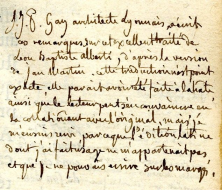 J. P. Gay architecte Lyonnais, écrit
ces remarques sur cet excellent traité de
Leon Baptiste Alberti, d'après la version
de Jean Martin. cette traduction n'est point
exacte. elle parait avoir été faite à la hâte
ainsi que le lecteur peut s'en convaincre en
la collationant avec l'original, mais j'
me suis servi parceque l'édition latine
dont j'ai fait usage ne m'appartenait pas,
et que je ne pouvais écrire sur les marges,